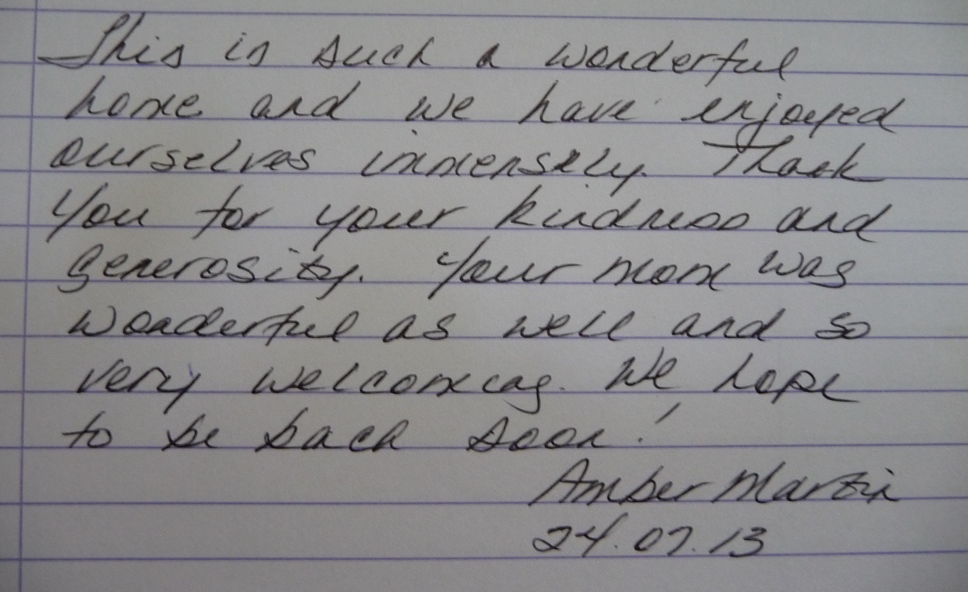 This is such a wonderful
home and we have enjoyed
ourselves immensely. Thank
you for your kindness and
generosity. Your mom was
wonderful as well and so
very welcoming. We hope
to be back soon!
Amber Martin
24.07.13